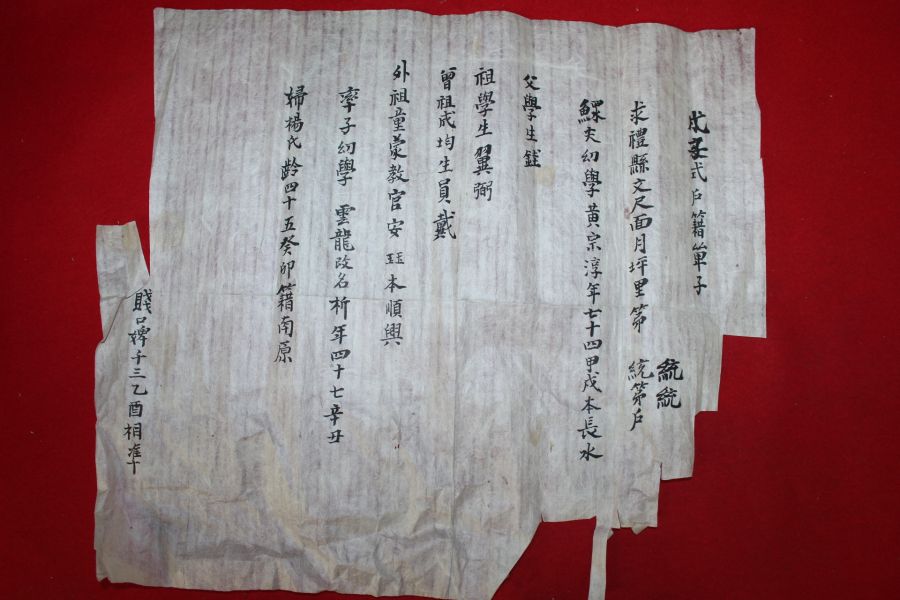 戊子式戶籍單子
求禮縣文尺面月坪里第 統第戶
統統
鰥夫幼學黃宗淳年七十四甲戌本長水
父學生
祖學生翼弼
曾祖成均生員戴
外祖童蒙教官安 玨 本順興
率子幼學 雲龍改名析年四十七辛丑
婦楊氏齡四十五癸卯籍南原
賤口婢千三乙酉相准